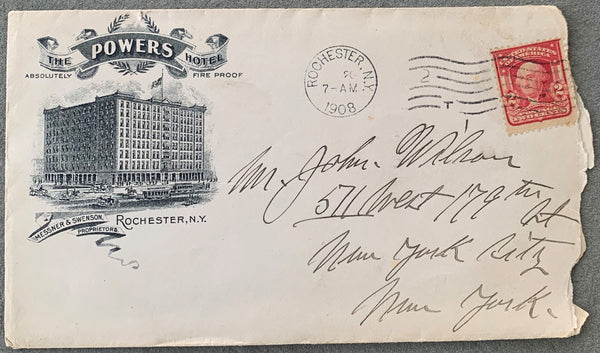 THE POWERS HOTEL
ABSOLUTELY FIRE PROOF
MESSNER & SWENSON,
PROPRIETORS.
ROCHESTER, N.Y.
ROCHESTER, N.Y.
20
7-AM
1908
2
T
UNITED STATES
OF AMERICA
2 2
TWO CENTS
Mr. John Wilson
511 West 179th St
New York City
New York.